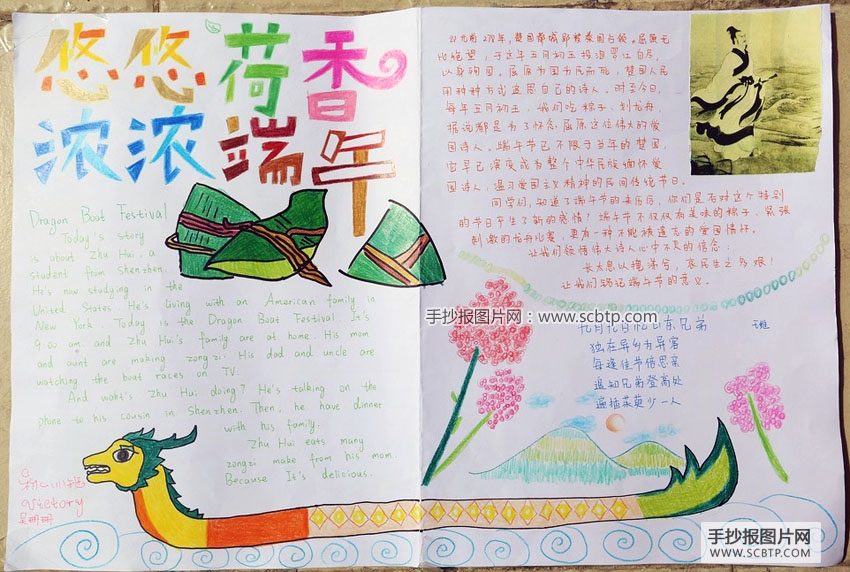 悠悠荷香
浓浓端午
Dragon Boat Festival
Today's story
is about Zhu Hui, a
student from Shenzhen.
He's now studying in the
United States. He's living with an American family in
New York. Today is the Dragon Boat Festival. It's
9:00 am. and Zhu Hui's family are at home. His mom
and aunt are making zongzi. His dad and uncle are
watching the boat races on TV.
And waht's Zhu Hui doing? He's talking on the
phone to his cousin in Shenzhen. Then, he have dinner
with his family.
Zhu Hui eats many
zongzi make from his mom.
Because It's delicious.
Victory
公元前278年,楚国都城郢被秦国占领。屈原无
比绝望,于这年五月初五投汨罗江自尽,
以身殉国。屈原为国为民而死,楚国人民
用种种方式追思自己的诗人。时至今日,
每年五月初五,我们吃粽子、划龙舟,
据说都是为了怀念屈原这位伟大的爱
国诗人。端午节已不限于当年的楚国,
它早已演变成为整个中华民族缅怀爱
国诗人,温习爱国主义精神的民间传统节日。
同学们,知道了端午节的来历后,你们是否对这个特别
的节日产生了新的感情?端午不仅仅有美味的粽子、紧张
刺激的龙舟比赛,更有一种不能被遗忘的爱国情怀。
让我们领悟伟大诗人心中不灭的信念:
长太息以掩涕兮,哀民生之多艰!
让我们铭记端午节的意义。
手抄报图片网:www.scbtp.com
九月九日忆山东兄弟 王维
独在异乡为异客
每逢佳节倍思亲
遥知兄弟登高处
遍插茱萸少一人
手抄报图片网
WWW.SCBTP.COM